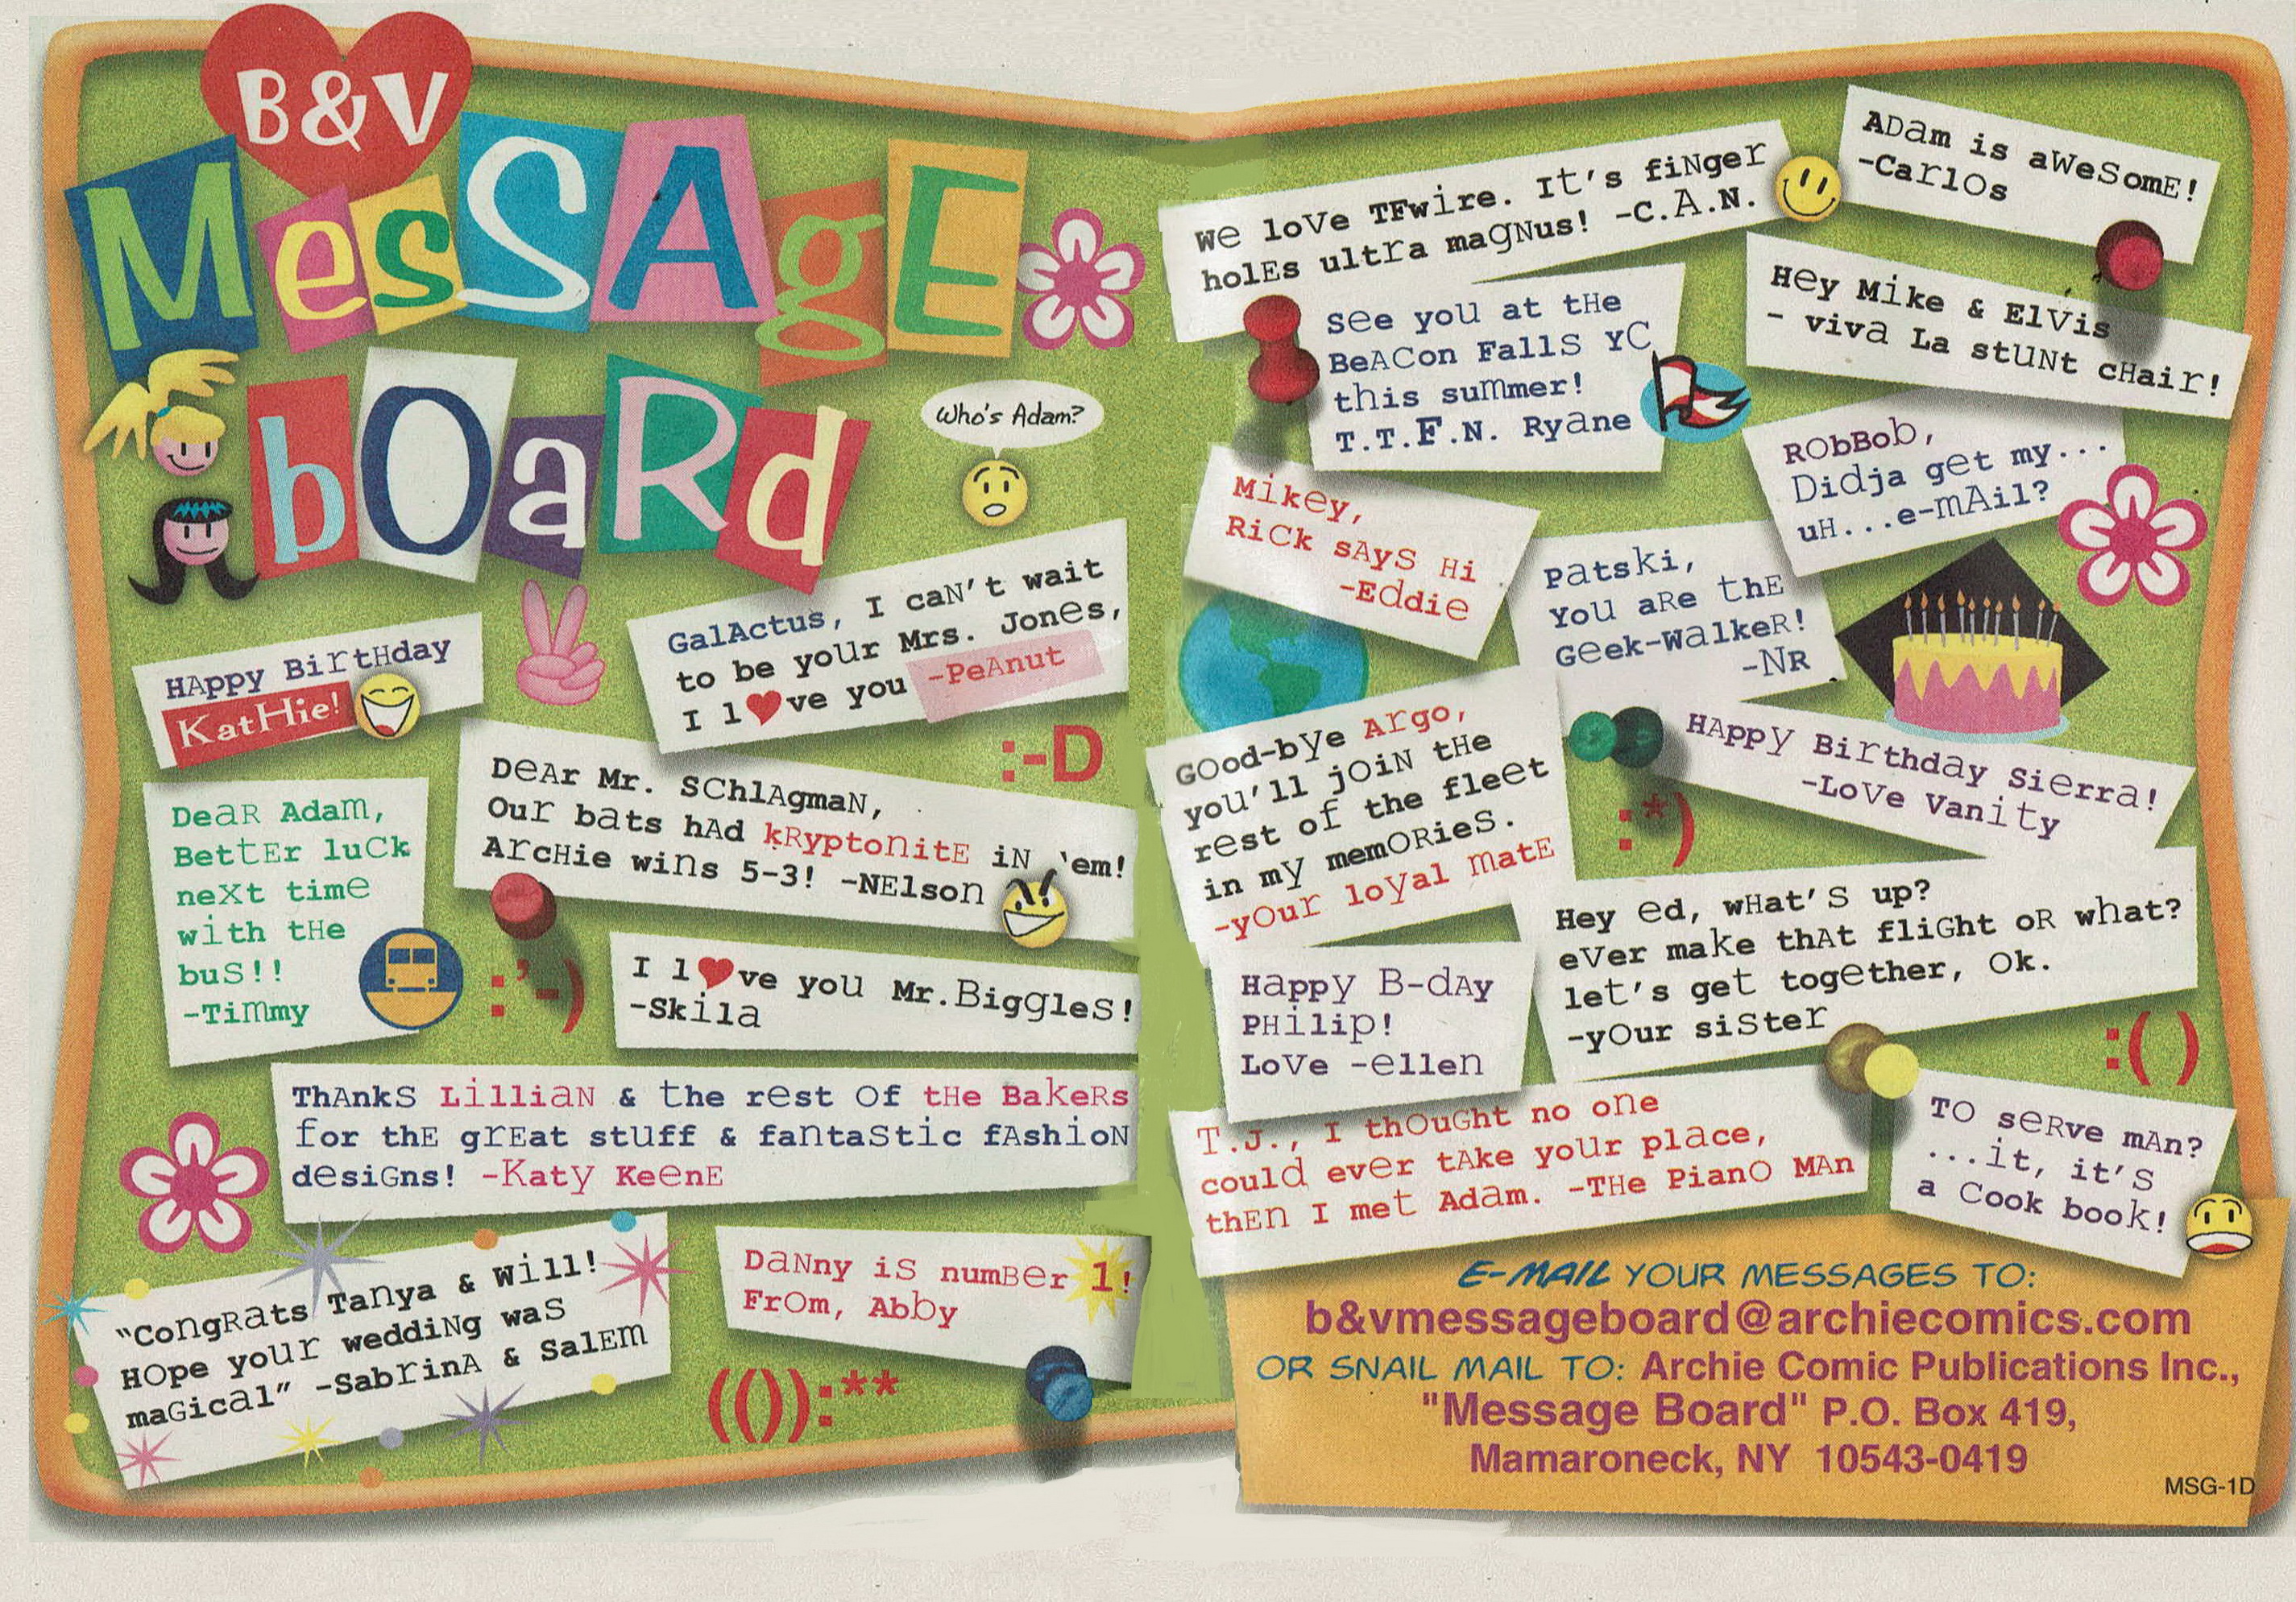 B&V
MesSAgE
bOaRd
Who's Adam?
HAppy BirtHday
KatHie!
GalActus, I caN't wait
to be your Mrs. Jones,
I l♥ve you -PeAnut
:-D
DeAr Mr. SChlAgmaN,
Our bats hAd kRyptoNitE iN 'em!
ArcHie wins 5-3! -NElson
DeaR Adam,
BettEr luCk
neXt time
with tHe
buS!!
-Timmy
:'-)
I l♥ve you Mr.BiggleS!
-Skila
ThAnkS LilliaN & the rest Of tHe BakeRs
for thE grEat stuff & fantaStic fAshioN
desiGns! -Katy KeenE
"CongRats Tanya & Will!
HOpe your weddiNg waS
maGical" -SabrinA & SalEm
DaNny iS numBer 1!
FrOm, Abby
(()):**
We loVe TFwire. It's fiNger
holEs ultra magNus! -C.A.N.
ADam is aWeSomE!
-CarlOs
See you at tHe
BeACon FallS YC
this summer!
T.T.F.N. Ryane
Hey Mike & ElVis
- viva La stuNt cHair!
RObBob,
Didja get my...
uH...e-mAil?
Mikey,
RiCk sAyS Hi
-Eddie
Patski,
You aRe thE
Geek-WalkeR!
-NR
GOod-bye Argo,
you'll jOiN tHe
rest of the fleet
in my memORieS.
-yOur loyal matE
HAppy Birthday Sierra!
-LoVe Vanity
:*)
Hey ed, wHat'S up?
eVer make thAt fliGht oR what?
let's get together, Ok.
-yOur siSter
Happy B-dAy
PHilip!
LoVe -ellen
:( )
T.J., I thOuGht no one
could ever tAke your place,
thEn I met Adam. -THe PianO MAn
TO seRve mAn?
...it, it'S
a Cook book!
E-MAIL YOUR MESSAGES TO:
b&vmessageboard@archiecomics.com
OR SNAIL MAIL TO: Archie Comic Publications Inc.,
"Message Board" P.O. Box 419,
Mamaroneck, NY 10543-0419
MSG-1D